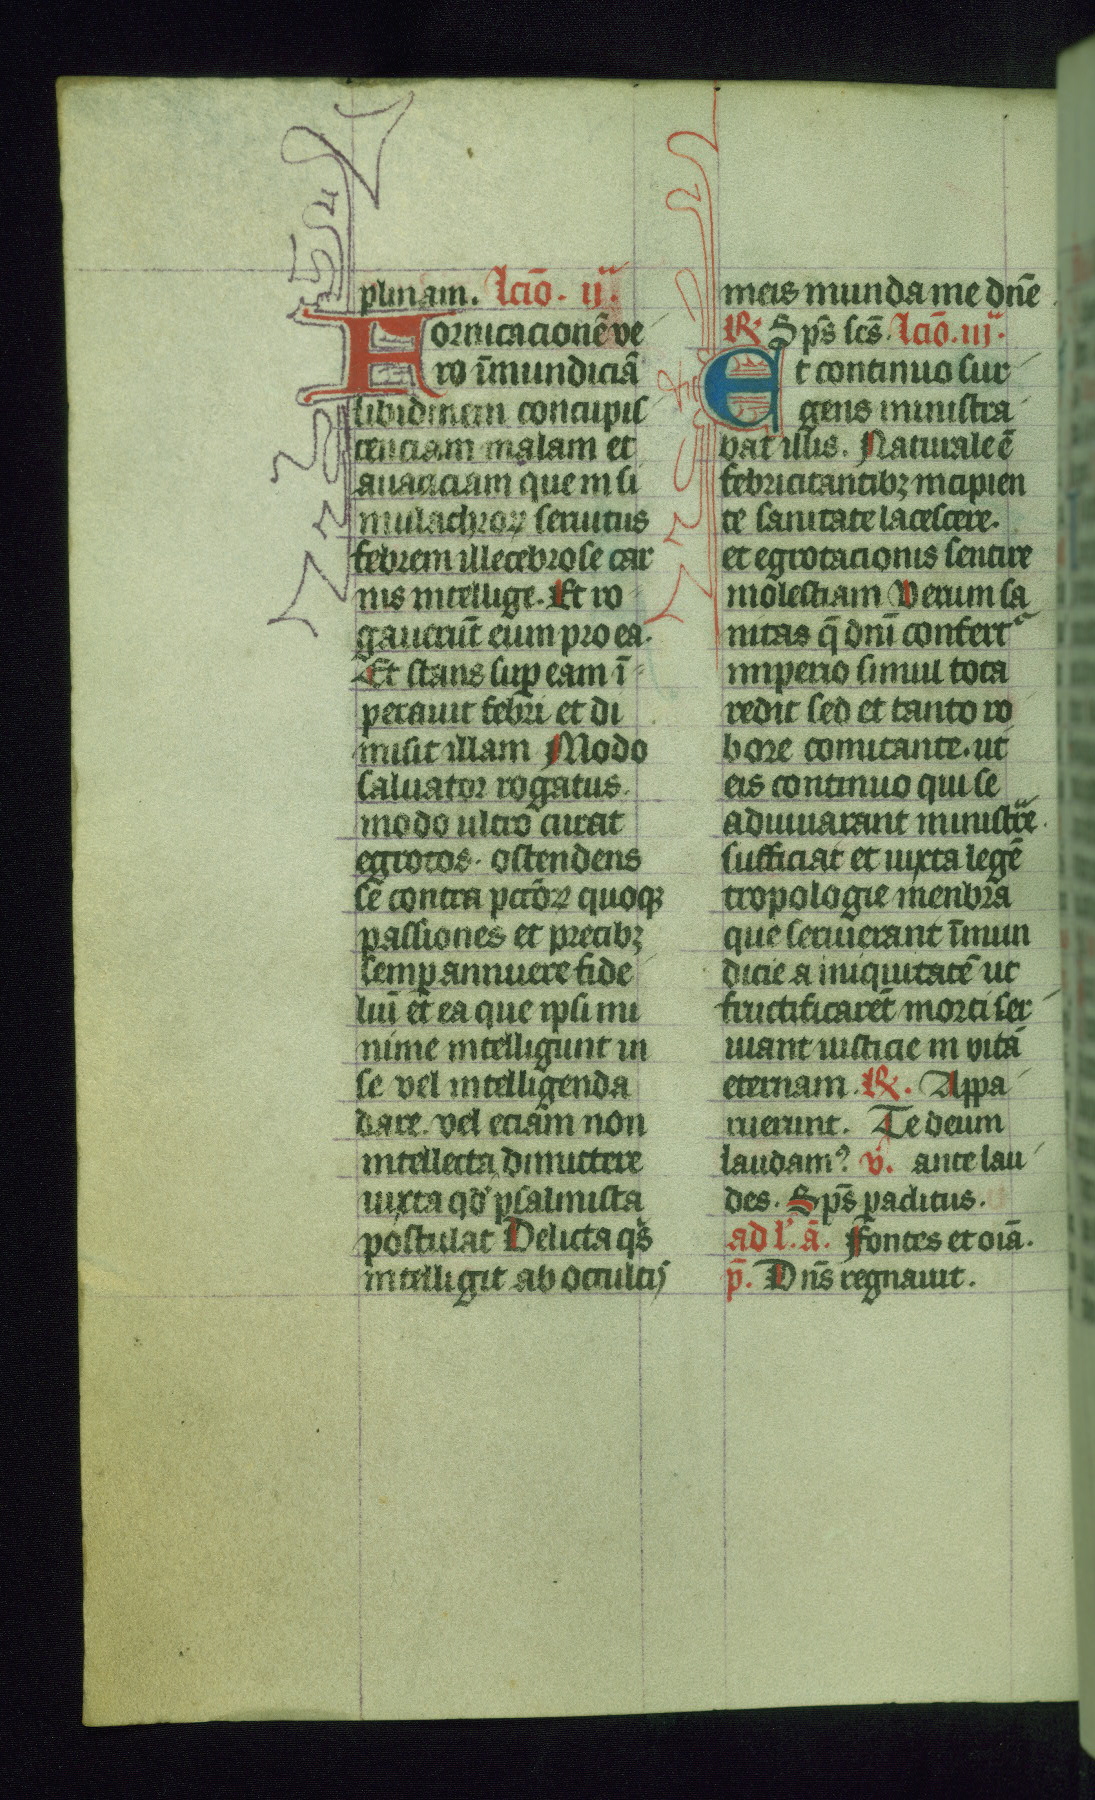 plinam. lcīo. ij.
Fornicacionē ve
ro īmundiciā
libidinem concupis
cenciam malam et
auaciciam que in si
mulachroꝝ seruitus
febrem illecebrose car
nis intellige. Et ro
gauerūt eum pro ea.
Et stans suꝑ eam ī
perauit febri et di
misit illam Modo
saluator rogatus.
modo ultro curat
egrotos. ostendens
sē contra pctōꝝ quoqꝫ
passiones et precibꝫ
semꝑ annuere fide
liū et ea que ipsi mi
nime intelligunt in
se vel intelligenda
dare. vel eciam non
intellecta dimittere
iuxta qd psalmista
postulat Delicta qͥs
intelligit ab occultis
meis munda me dn̄e
℟. Sp̄s sc̄s. lcīo. iij.
Et continuo sur
gens ministra
bat illis. Naturale ē
febricitantibꝫ incipien
te sanitate lacescere.
et egrotacionis sentire
molestiam Verum sa
nitas q̄ dn̄i confert͛
imperio simul tota
redit sed et tanto ro
bore comitante. ut
eis continuo qui se
adiuuarant ministre
sufficiat et iuxta legē
tropologie menbra
que seruierant īmun
dicie a iniquitatē ut
fructificarēt morti ser
uiant iusticie in vitā
eternam. ℟. Appa
ruerunt. Te deum
laudam⁹ v̄. ante lau
des. Sp̄s paclitus.
ad l'. ā. Fontes et oīā.
p̄. Dn̄s regnauit.